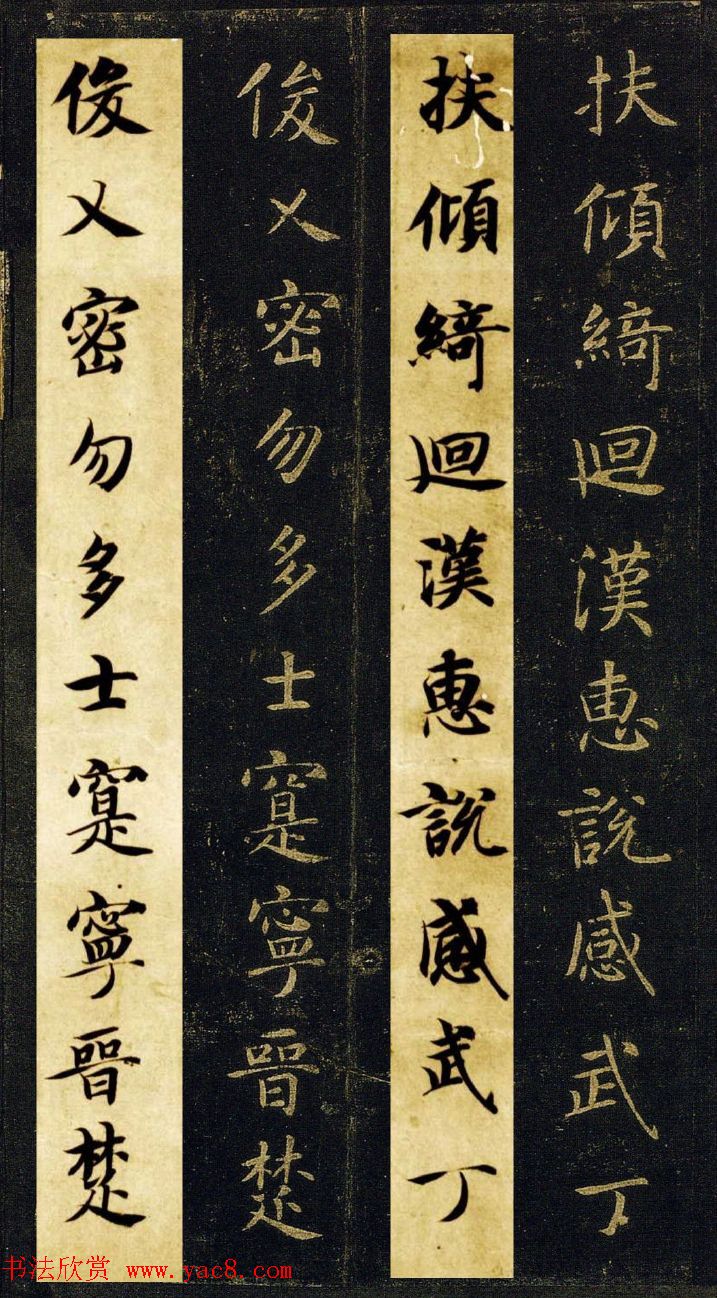 扶傾綺迴漢惠說感武丁
扶傾綺迴漢惠說感武丁
俊乂密勿多士寔寧晉楚
俊乂密勿多士寔寧晉楚
书法欣赏 www.yac8.com